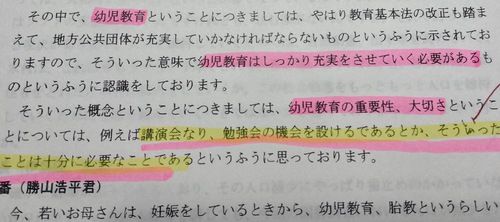 その中で、幼児教育ということにつきましては、やはり教育基本法の改正も踏ま
えて、地方公共団体が充実していかなければならないものというふうに示されてお
りますので、そういった意味で幼児教育はしっかり充実をさせていく必要があるも
のというふうに認識をしております。
そういった概念ということにつきましては、幼児教育の重要性、大切さというこ
とについては、例えば講演会なり、勉強会の機会を設けるであるとか、そういった
ことは十分に必要なことであるというふうに思っております。
番(勝山浩平君)
今、若いお母さんは、妊娠をしているときから、幼児教育、胎教というらしい